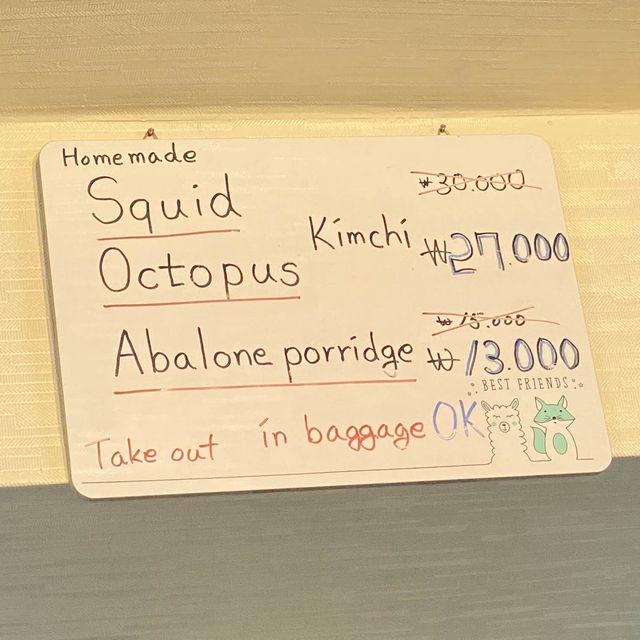 Homemade
Squid
₩30.000
Kimchi
₩27.000
Octopus
₩15.000
Abalone porridge ₩13.000
BEST FRIENDS
Take out in baggage OK